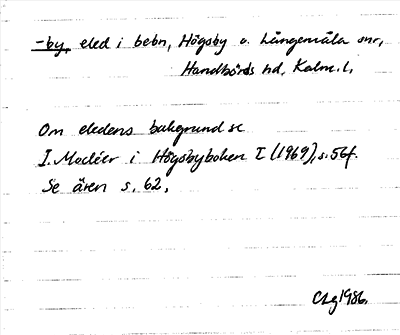 -by, eled i bebn, Högsby o. Långemåla snr,
Handbörds hd, Kalm. l.
Om eledens bakgrund se
I. Modéer i Högsbyboken I (1969), s. 56f.
Se även s. 62.
CLg 1986.